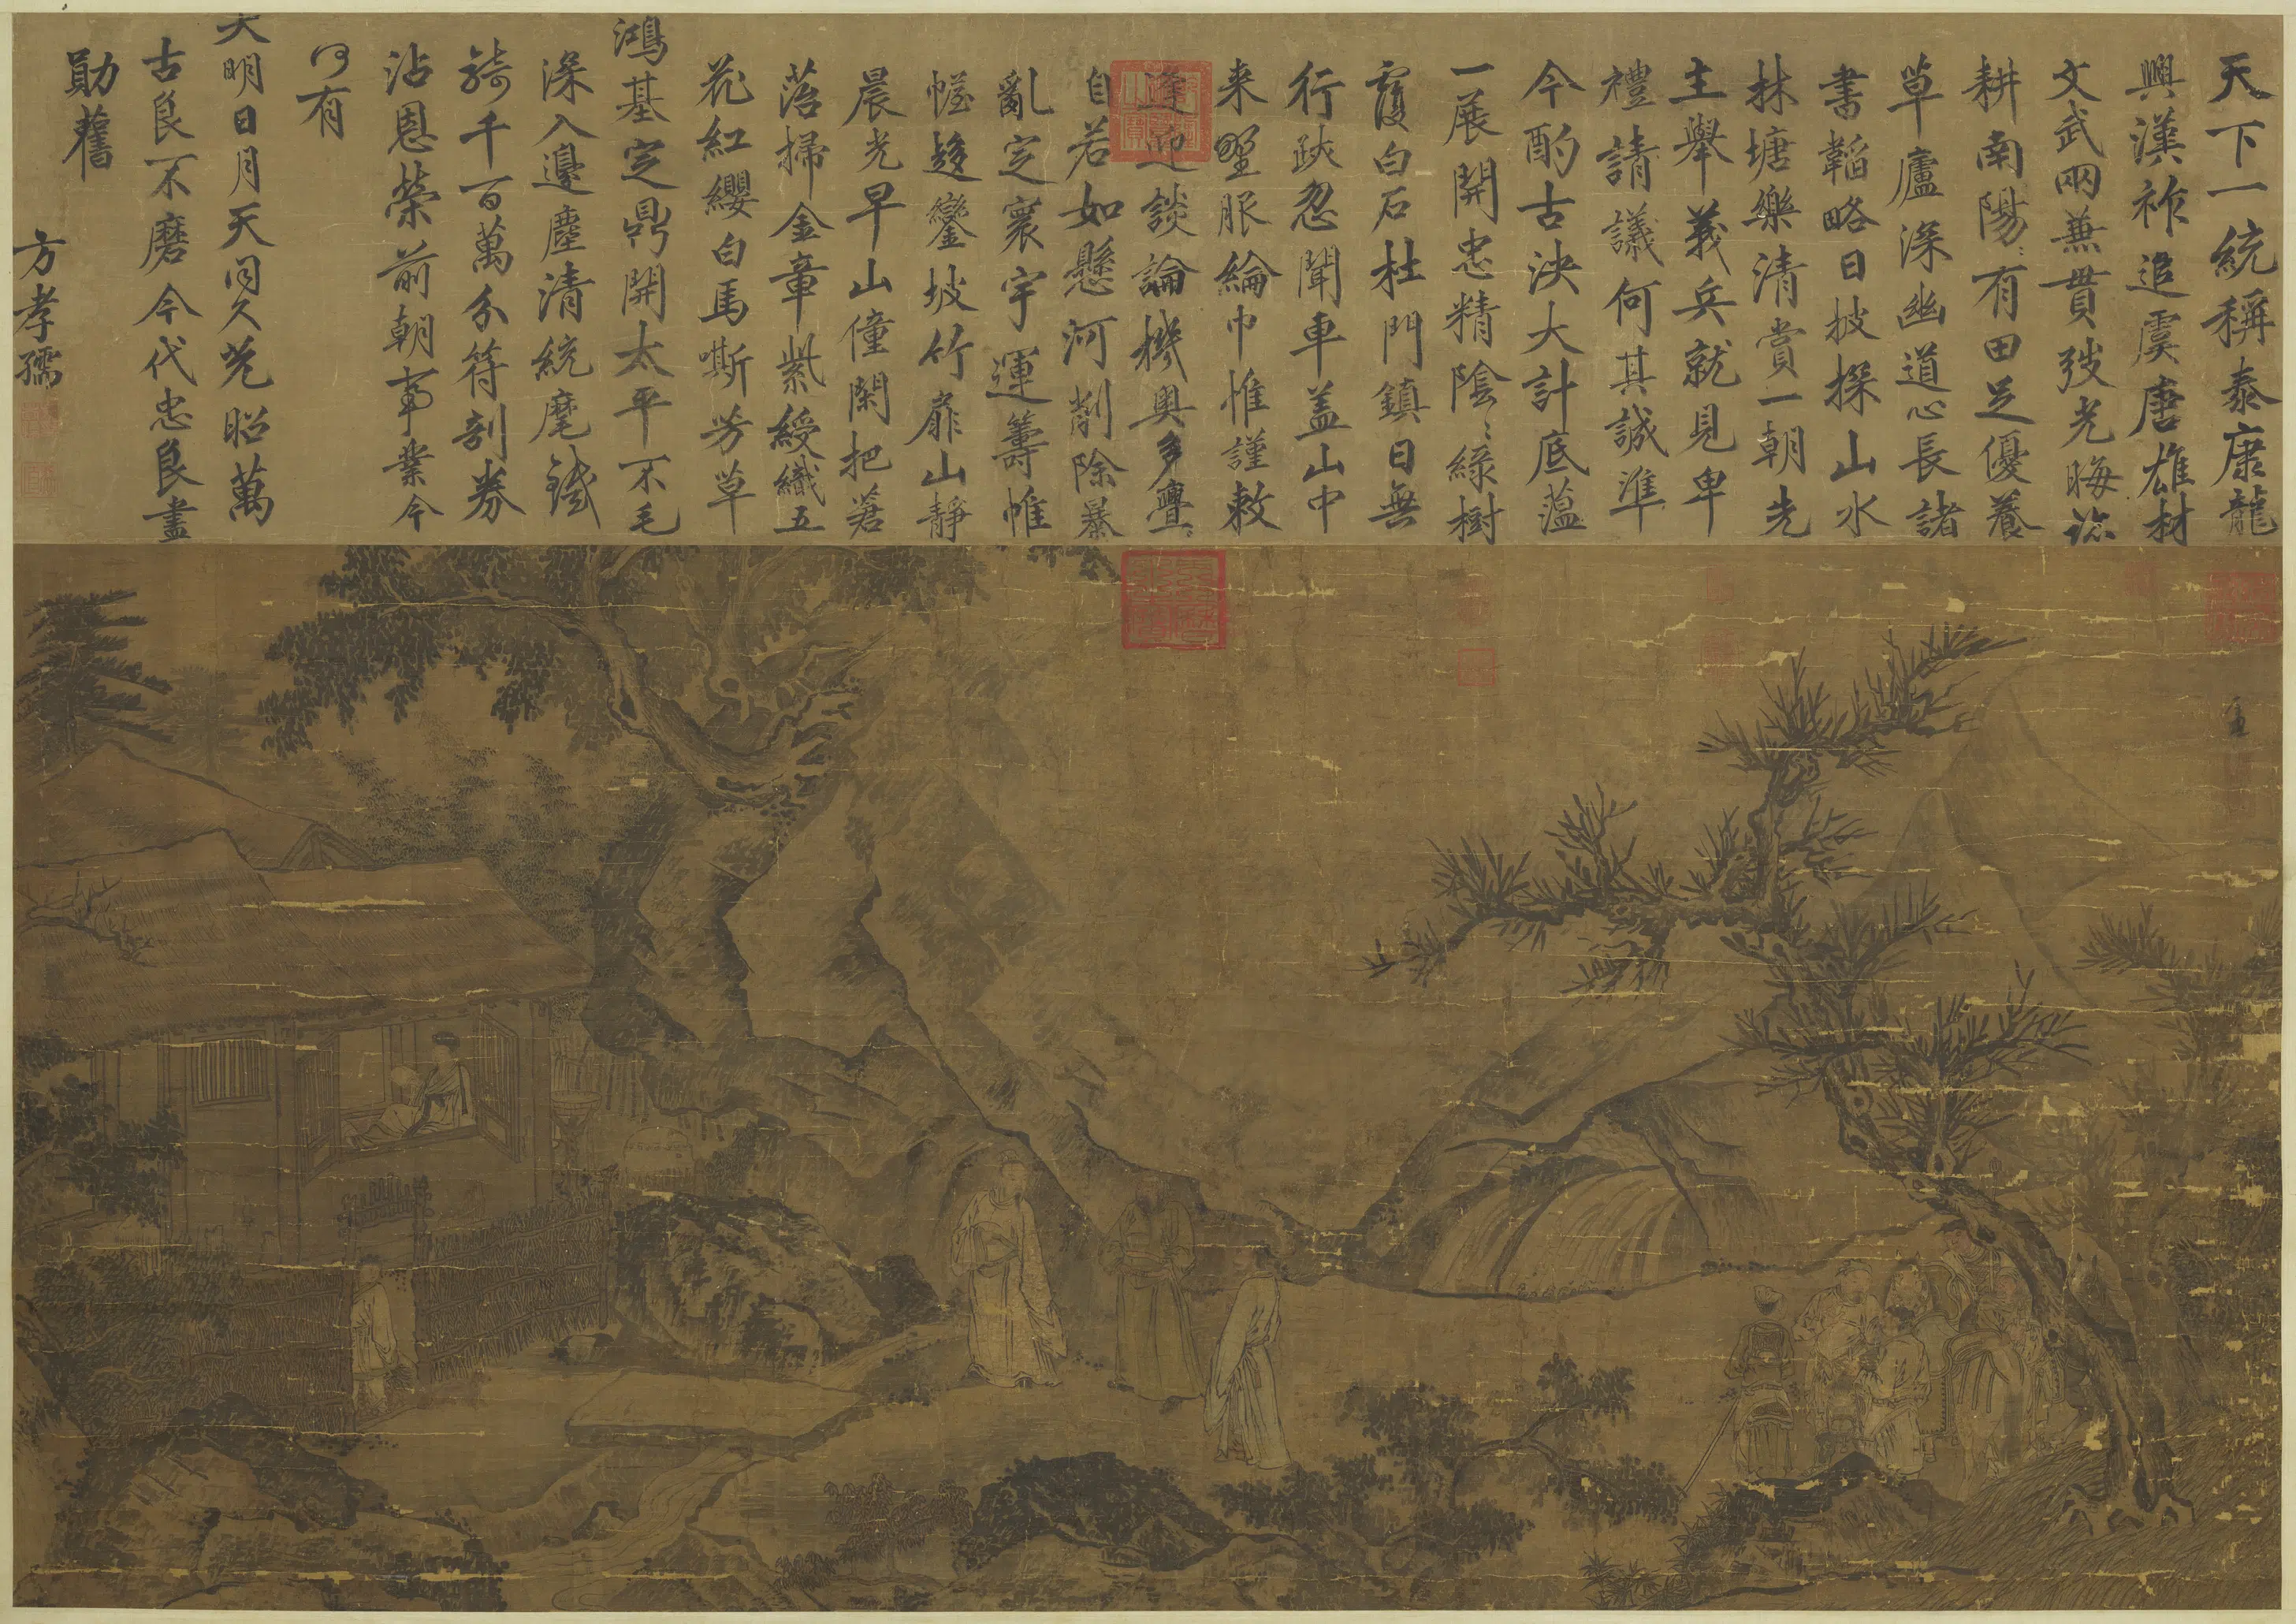 天下一統稱泰康龍
興漢祚追虞唐雄材
文武兩兼貫弢光晦跡
耕南陽〻有田足優養
草廬深幽道心長諸
書韜略日披探山水
林塘樂清賞一朝先
主舉義兵就見卑
禮請議何其誠準
今酌古決大計底蘊
一展開忠精陰〻綠樹
覆白石杜門鎮日無
行跡忽聞車蓋山中
来野服綸巾惟謹敕
逢迎談論機奧多亹〻
自若如懸河削除暴
亂定寰宇運籌帷
幄趍鑾坡竹扉山靜
晨光早山僮閑把蒼
落掃金章紫綬織五
花紅纓白馬嘶芳草
鴻基定鼎開太平不毛
深入邊塵清統麾鐵
騎千百萬分符剖券
沾恩榮前朝事業今
何有
大明日月天同久光昭萬
古良不磨今代忠良盡
勛舊
方孝孺